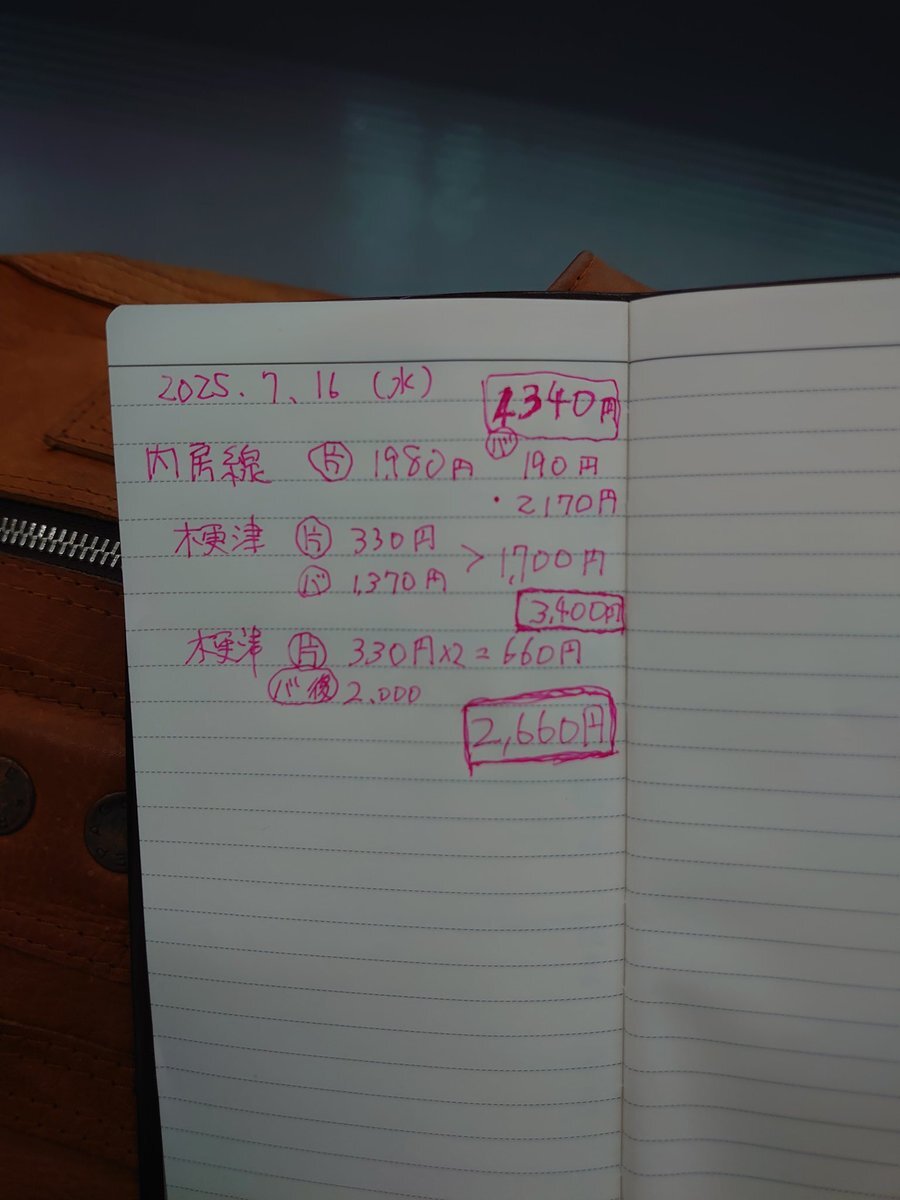 2025.7.16 (水) 4340円
内房線 片 1,980円 バ 190円
・2170円
木更津 片 330円
バ 1,370円 > 1,700円
3,400円
木更津 片 330円×2=660円
バ後 2.000
2,660円